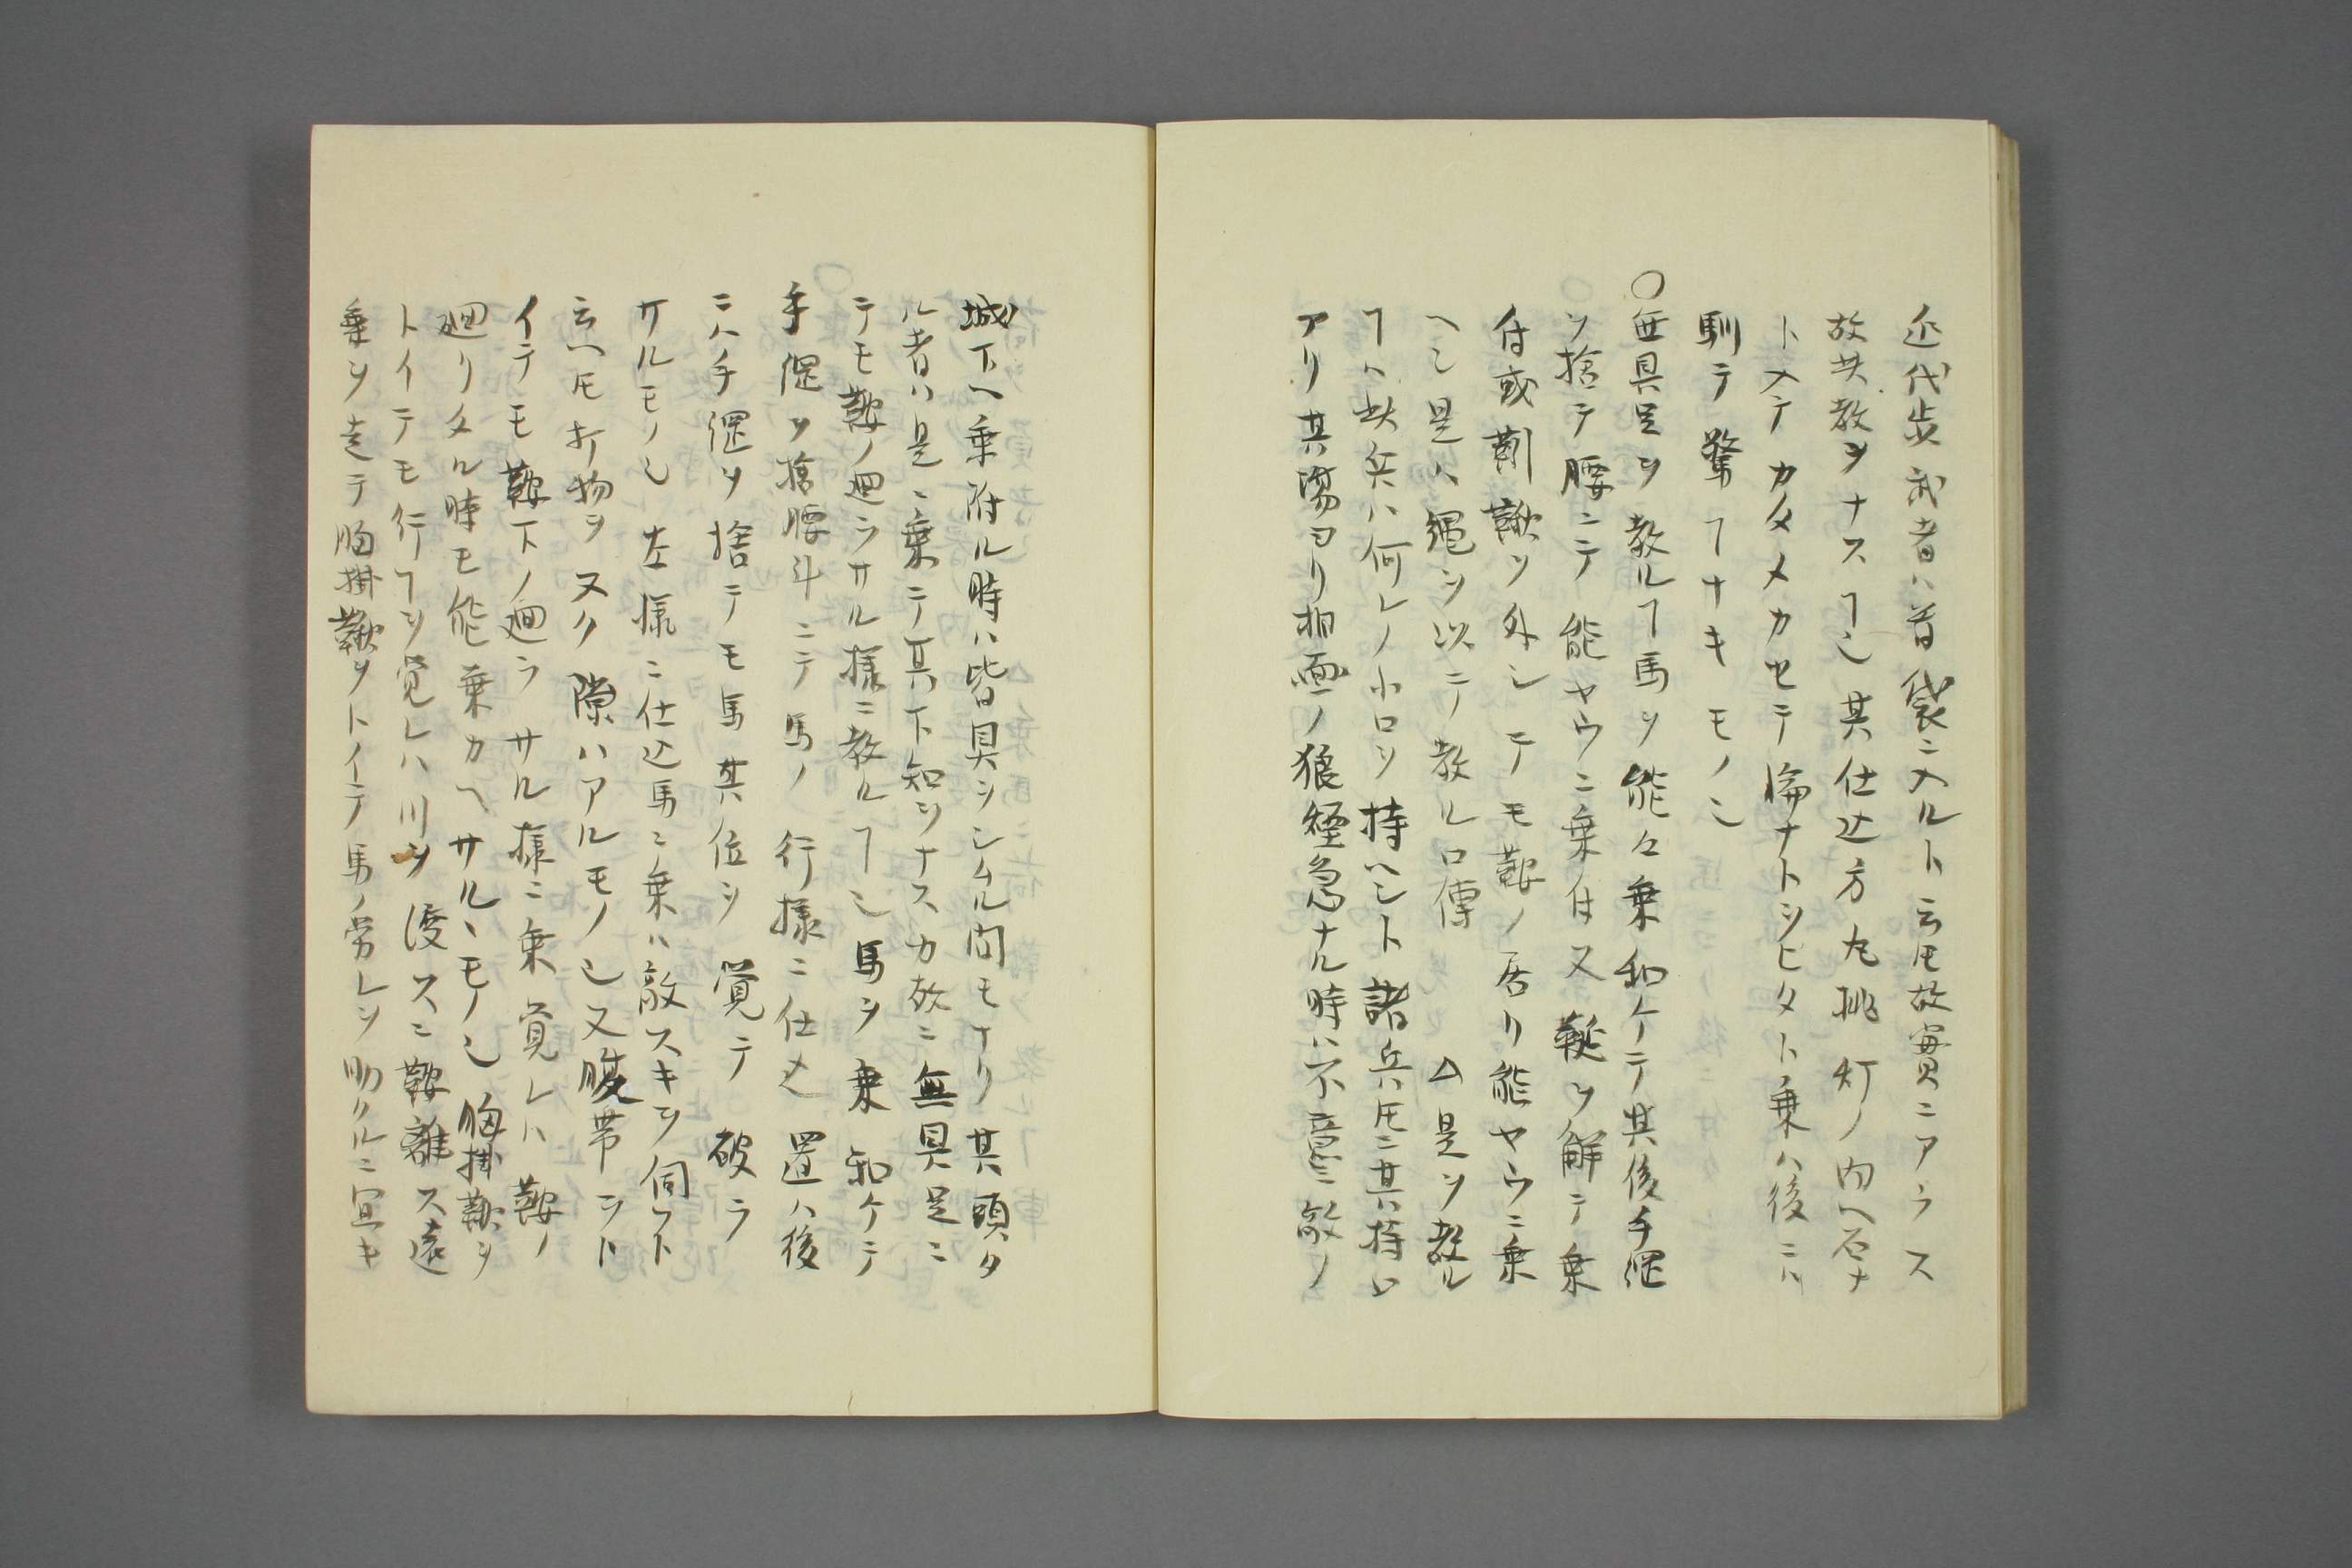 近代歩武者ハ首袋ニ入ルト云𪜈故實ニアラス
故共教ヲナスヿ也其仕込方丸挑灯ノ内ヘ石ナ
ト入テカタメカセテ䑓ナトシヒタト乗ハ後ニハ
馴テ驚ヿナキモノ也
〇無具足ヲ教ルヿ馬ヲ能々乗和ケテ其後手綱
ヲ捨テ腰ニテ能ヤウニ乗付又鞍ヲ解テ乗
付或鞦ヲ外シテモ鞍ノ居リ能ヤウニ乗
ヘシ是ハ縄ヲ以テ教ル口傳 △是ヲ教ル
ヿハ此兵ハ何レノ小口ヲ持ヘシト諸兵𪜈ニ其持口
アリ其場ヨリ相圖ノ狼煙急ナル時ハ不意ニ敵ノ
城下ヘ乗附ル時ハ皆具シシムル間モナク其頭タ
ル者ハ是ニ乗テ其下知ヲナスカ故ニ無具足ニ
テモ鞍ノ廻ラサル様ニ教ルヿ也馬ヲ乗和ケテ
手綱ヲ捨腰斗ニテ馬ノ行様ニ仕込置ハ後
ニハ手綱ヲ捨テモ馬其位ヲ覚テ破ラ
サルモノ也左様ニ仕込馬ニ乗ハ敵スキヲ伺フト
云ヘ𪜈打物ヲヌク隙ハアルモノ也又腹帯ヲト
イテモ鞍下ノ廻ラサル様ニ乗覚レハ鞍ノ
廻リタル時モ能乗カヘサルヽモノ也胸掛鞦ヲ
トイテモ行ヿヲ覚レハ川ヲ渡スニ鞍離ス遠
乗ヲ走テ胸掛鞦ヲトイテ馬ノ労レヲ助クルニ宜キ